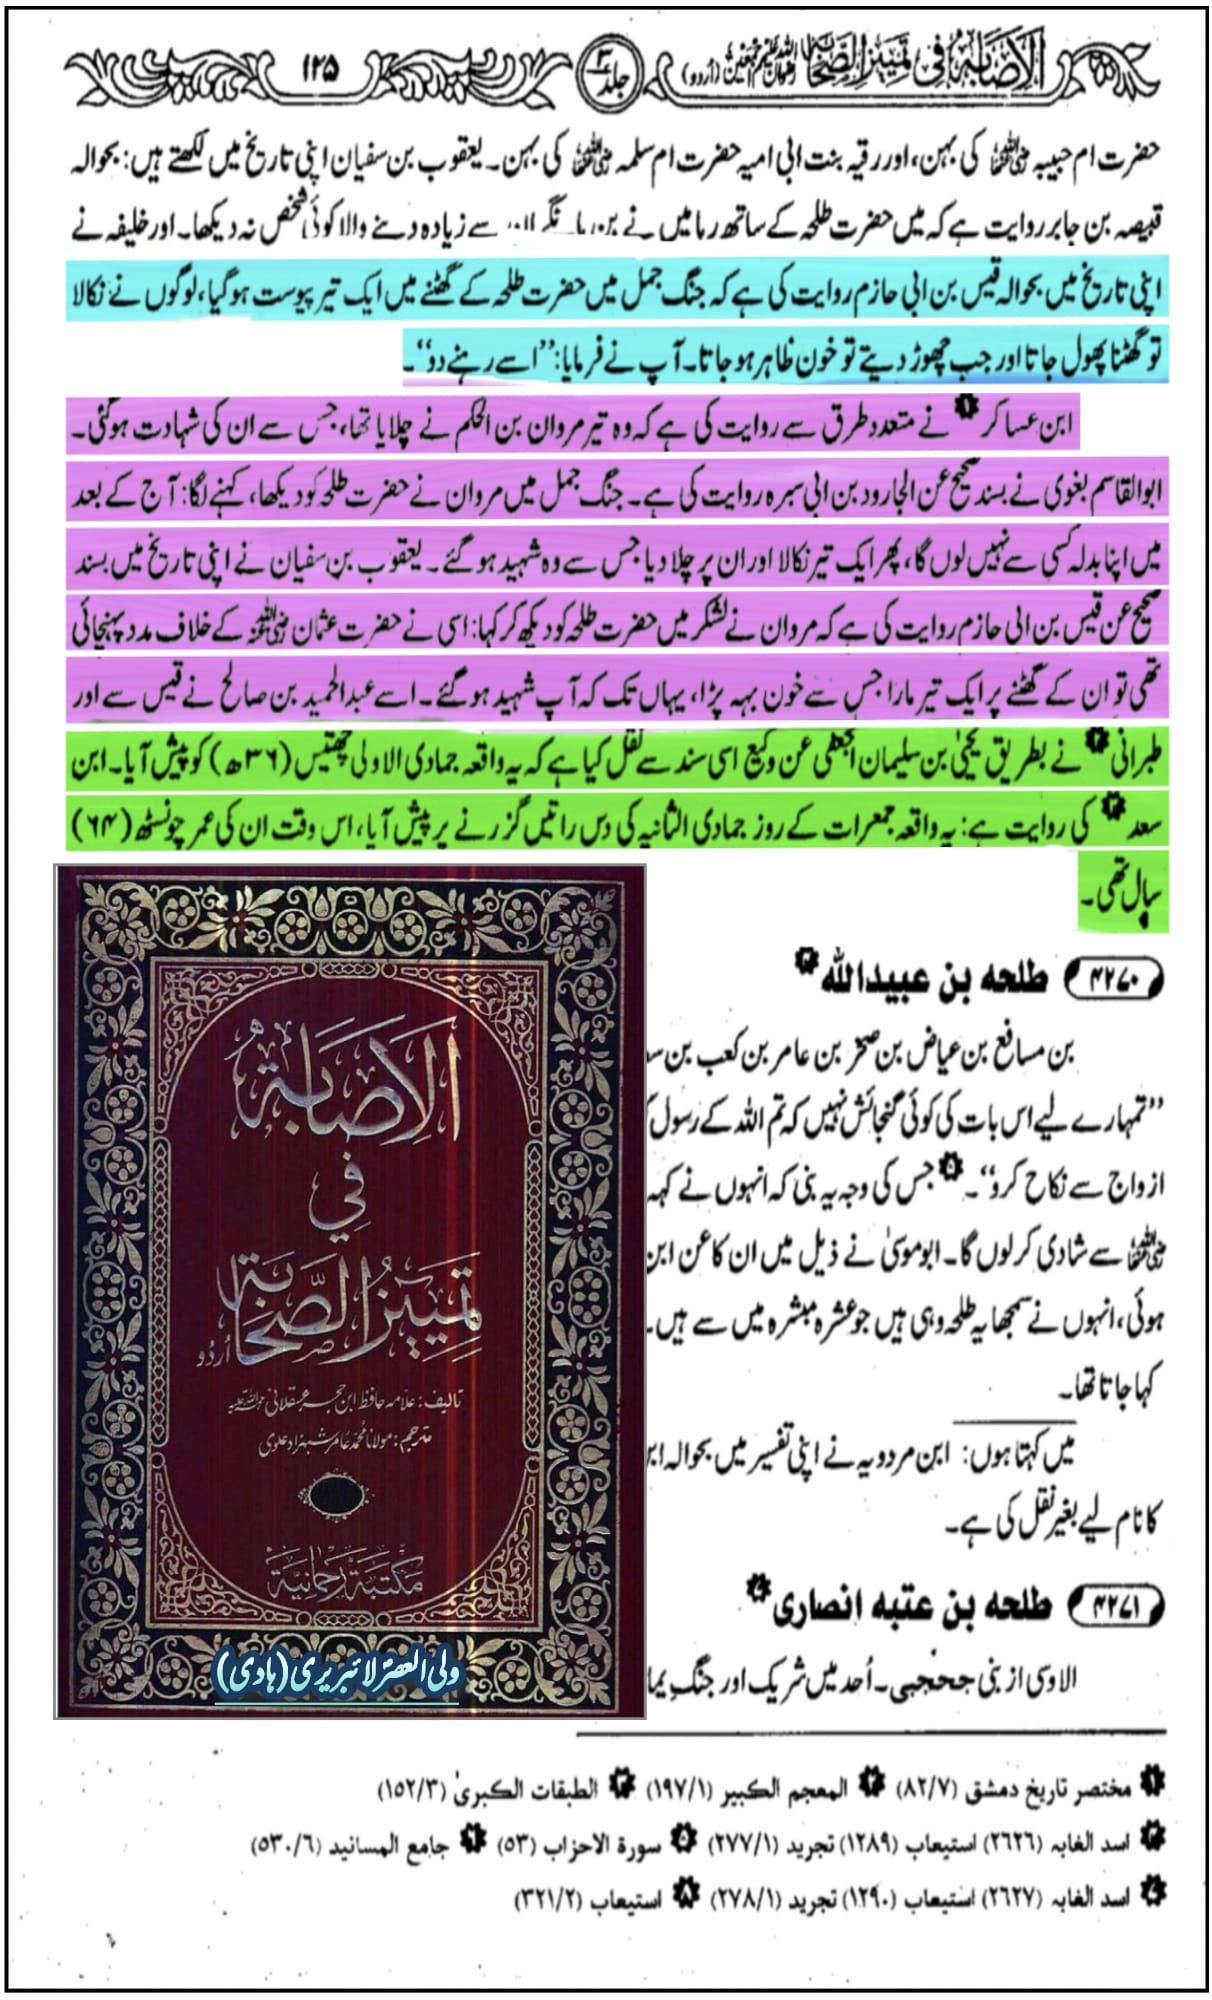 الاصابہ فی تمییز الصحابہ رضوان اللہ علیہم اجمعین (اُردو) جلد ۳ ۱۲۵
حضرت ام حبیبہ رضی اللہ عنہا کی بہن، اور رقیہ بنت ابی امیہ حضرت ام سلمہ رضی اللہ عنہا کی بہن۔ یعقوب بن سفیان اپنی تاریخ میں لکھتے ہیں: بحوالہ
قبیصہ بن جابر روایت ہے کہ میں حضرت طلحہ کے ساتھ رہا میں نے بن مانگے مال سے زیادہ دینے والا کوئی شخص نہ دیکھا۔ اور خلیفہ نے
اپنی تاریخ میں بحوالہ قیس بن ابی حازم روایت کی ہے کہ جنگ جمل میں حضرت طلحہ کے گھٹنے میں ایک تیر پیوست ہوگیا، لوگوں نے نکالا
تو گھٹنا پھول جاتا اور جب چھوڑ دیتے تو خون ظاہر ہو جاتا۔ آپ نے فرمایا: ’’اسے رہنے دو‘‘۔
ابن عساکر ۱ نے متعدد طرق سے روایت کی ہے کہ وہ تیر مروان بن الحکم نے چلایا تھا، جس سے ان کی شہادت ہوگئی۔
ابوالقاسم بغوی نے بسند صحیح عن الجارود بن ابی سبرہ روایت کی ہے۔ جنگ جمل میں مروان نے حضرت طلحہ کو دیکھا، کہنے لگا: آج کے بعد
میں اپنا بدلہ کسی سے نہیں لوں گا، پھر ایک تیر نکالا اور ان پر چلا دیا جس سے وہ شہید ہو گئے۔ یعقوب بن سفیان نے اپنی تاریخ میں بسند
صحیح عن قیس بن ابی حازم روایت کی ہے کہ مروان نے لشکر میں حضرت طلحہ کو دیکھ کر کہا: اسی نے حضرت عثمان رضی اللہ عنہ کے خلاف مدد پہنچائی
تھی تو ان کے گھٹنے پر ایک تیر مارا جس سے خون بہہ پڑا، یہاں تک کہ آپ شہید ہو گئے۔ اسے عبدالحمید بن صالح نے قیس سے اور
طبرانی ۲ نے بطریق یحییٰ بن سلیمان الجعفی عن وکیع اسی سند سے نقل کیا ہے کہ یہ واقعہ جمادی الاولی چھتیس (۳۶ھ) کو پیش آیا۔ ابن
سعد ۳ کی روایت ہے: یہ واقعہ جمعرات کے روز جمادی الثانیہ کی دس راتیں گزرنے پر پیش آیا، اس وقت ان کی عمر چونسٹھ (۶۴)
سال تھی۔
۴۲۷۰ طلحہ بن عبیداللہ ۴
بن مسافع بن عیاض بن صخر بن عامر بن کعب بن سع
’’تمہارے لیے اس بات کی کوئی گنجائش نہیں کہ تم اللہ کے رسول ک
ازواج سے نکاح کرو‘‘۔ ۵ جس کی وجہ یہ بنی کہ انہوں نے کہہ
رضی اللہ عنہا سے شادی کر لوں گا۔ ابوموسیٰ نے ذیل میں ان کا عن ابن
ہوئی، انہوں نے سمجھا یہ طلحہ وہی ہیں جو عشرہ مبشرہ میں سے ہیں۔
کہا جاتا تھا۔
میں کہتا ہوں: ابن مردویہ نے اپنی تفسیر میں بحوالہ ابن
کا نام لیے بغیر نقل کی ہے۔
۴۲۷۱ طلحہ بن عتبہ انصاری ۷
الاوسی از بنی جحجبی۔ اُحد میں شریک اور جنگِ یما
الاصابة
في
تمييز الصحابة
اُردُو
تالیف: علامہ حافظ ابن حجر عسقلانی رحمۃ اللہ علیہ
مترجم: مولانا محمد عامر شہزاد علوی
مکتبہ رحمانیہ
ولی العصرؑ لائبریری (ہادی)
۱ مختصر تاریخ دمشق (۸۲/۷) ۲ المعجم الکبیر (۱۹۷/۱) ۳ الطبقات الکبریٰ (۱۵۲/۳)
۴ اسد الغابہ (۲۶۲۶) استیعاب (۱۲۸۹) تجرید (۲۷۷/۱) ۵ سورة الاحزاب (۵۳) ۶ جامع المسانید (۵۳۰/۶)
۷ اسد الغابہ (۲۶۲۷) استیعاب (۱۲۹۰) تجرید (۲۷۸/۱) ۸ استیعاب (۳۲۱/۲)